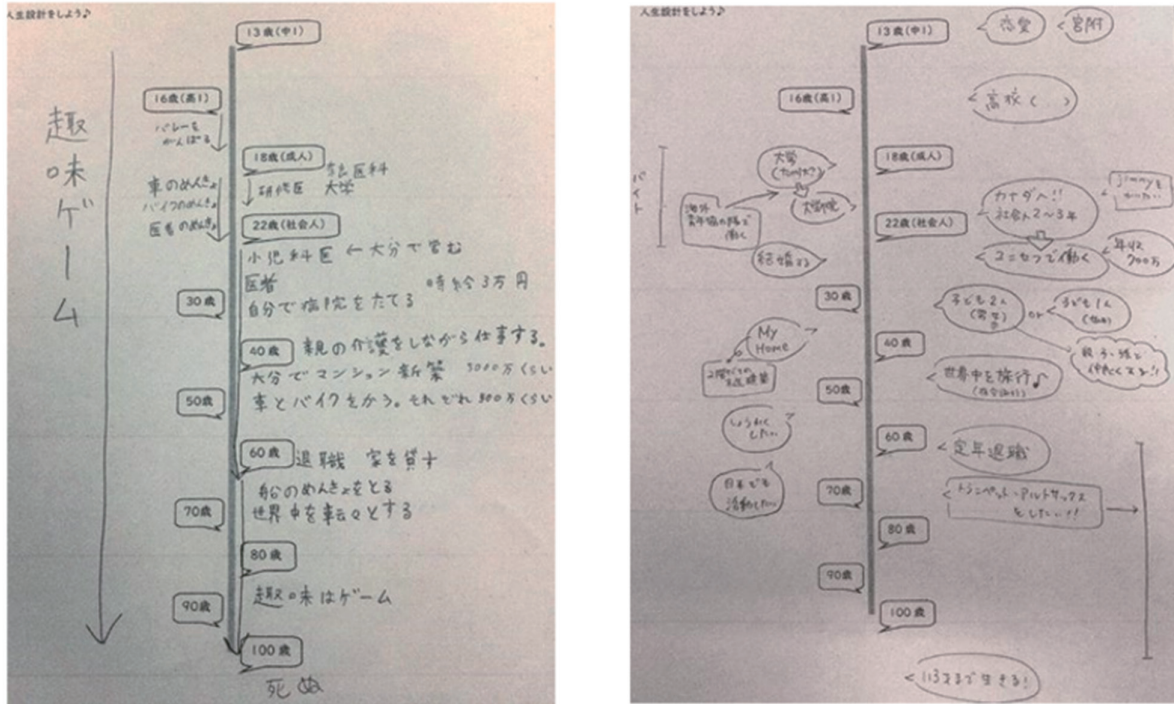 人生設計をしよう♪
13歳(中1)
16歳(高1)
バレーを
がんばる
18歳(成人)
医科
研修医 大学
車のめんきょ
バイクのめんきょ
医者のめんきょ
22歳(社会人)
小児科医 ← 大分で営む
医者 時給3万円
30歳
自分で病院をたてる
40歳
親の介護をしながら仕事する。
大分でマンション新築 5000万くらい
50歳
車とバイクをかう。それぞれ 800万くらい
60歳
退職 家を貸す
船のめんきょをとる
70歳
世界中を転々とする
80歳
90歳
趣味はゲーム
100歳
死ぬ
趣味ゲーム
人生設計をしよう♪
13歳(中1)
恋愛
16歳(高1)
高校( )
18歳(成人)
バイト
大学
大学院
海外
青年協力隊で
働く
22歳(社会人)
カナダへ!!
社会人2~3年
Jimnyを
かいたい
ユニセフで働く
年収
700万
結婚する
30歳
子ども2人
or
子ども1人
My
Home
40歳
2階だての
木造建築
世界中を旅行♪
50歳
しょうかくしたい
60歳
定年退職
日本でも
活動したい
70歳
トランペット・アルトサックス
をしたい!!
80歳
90歳
100歳
113才まで生きる!